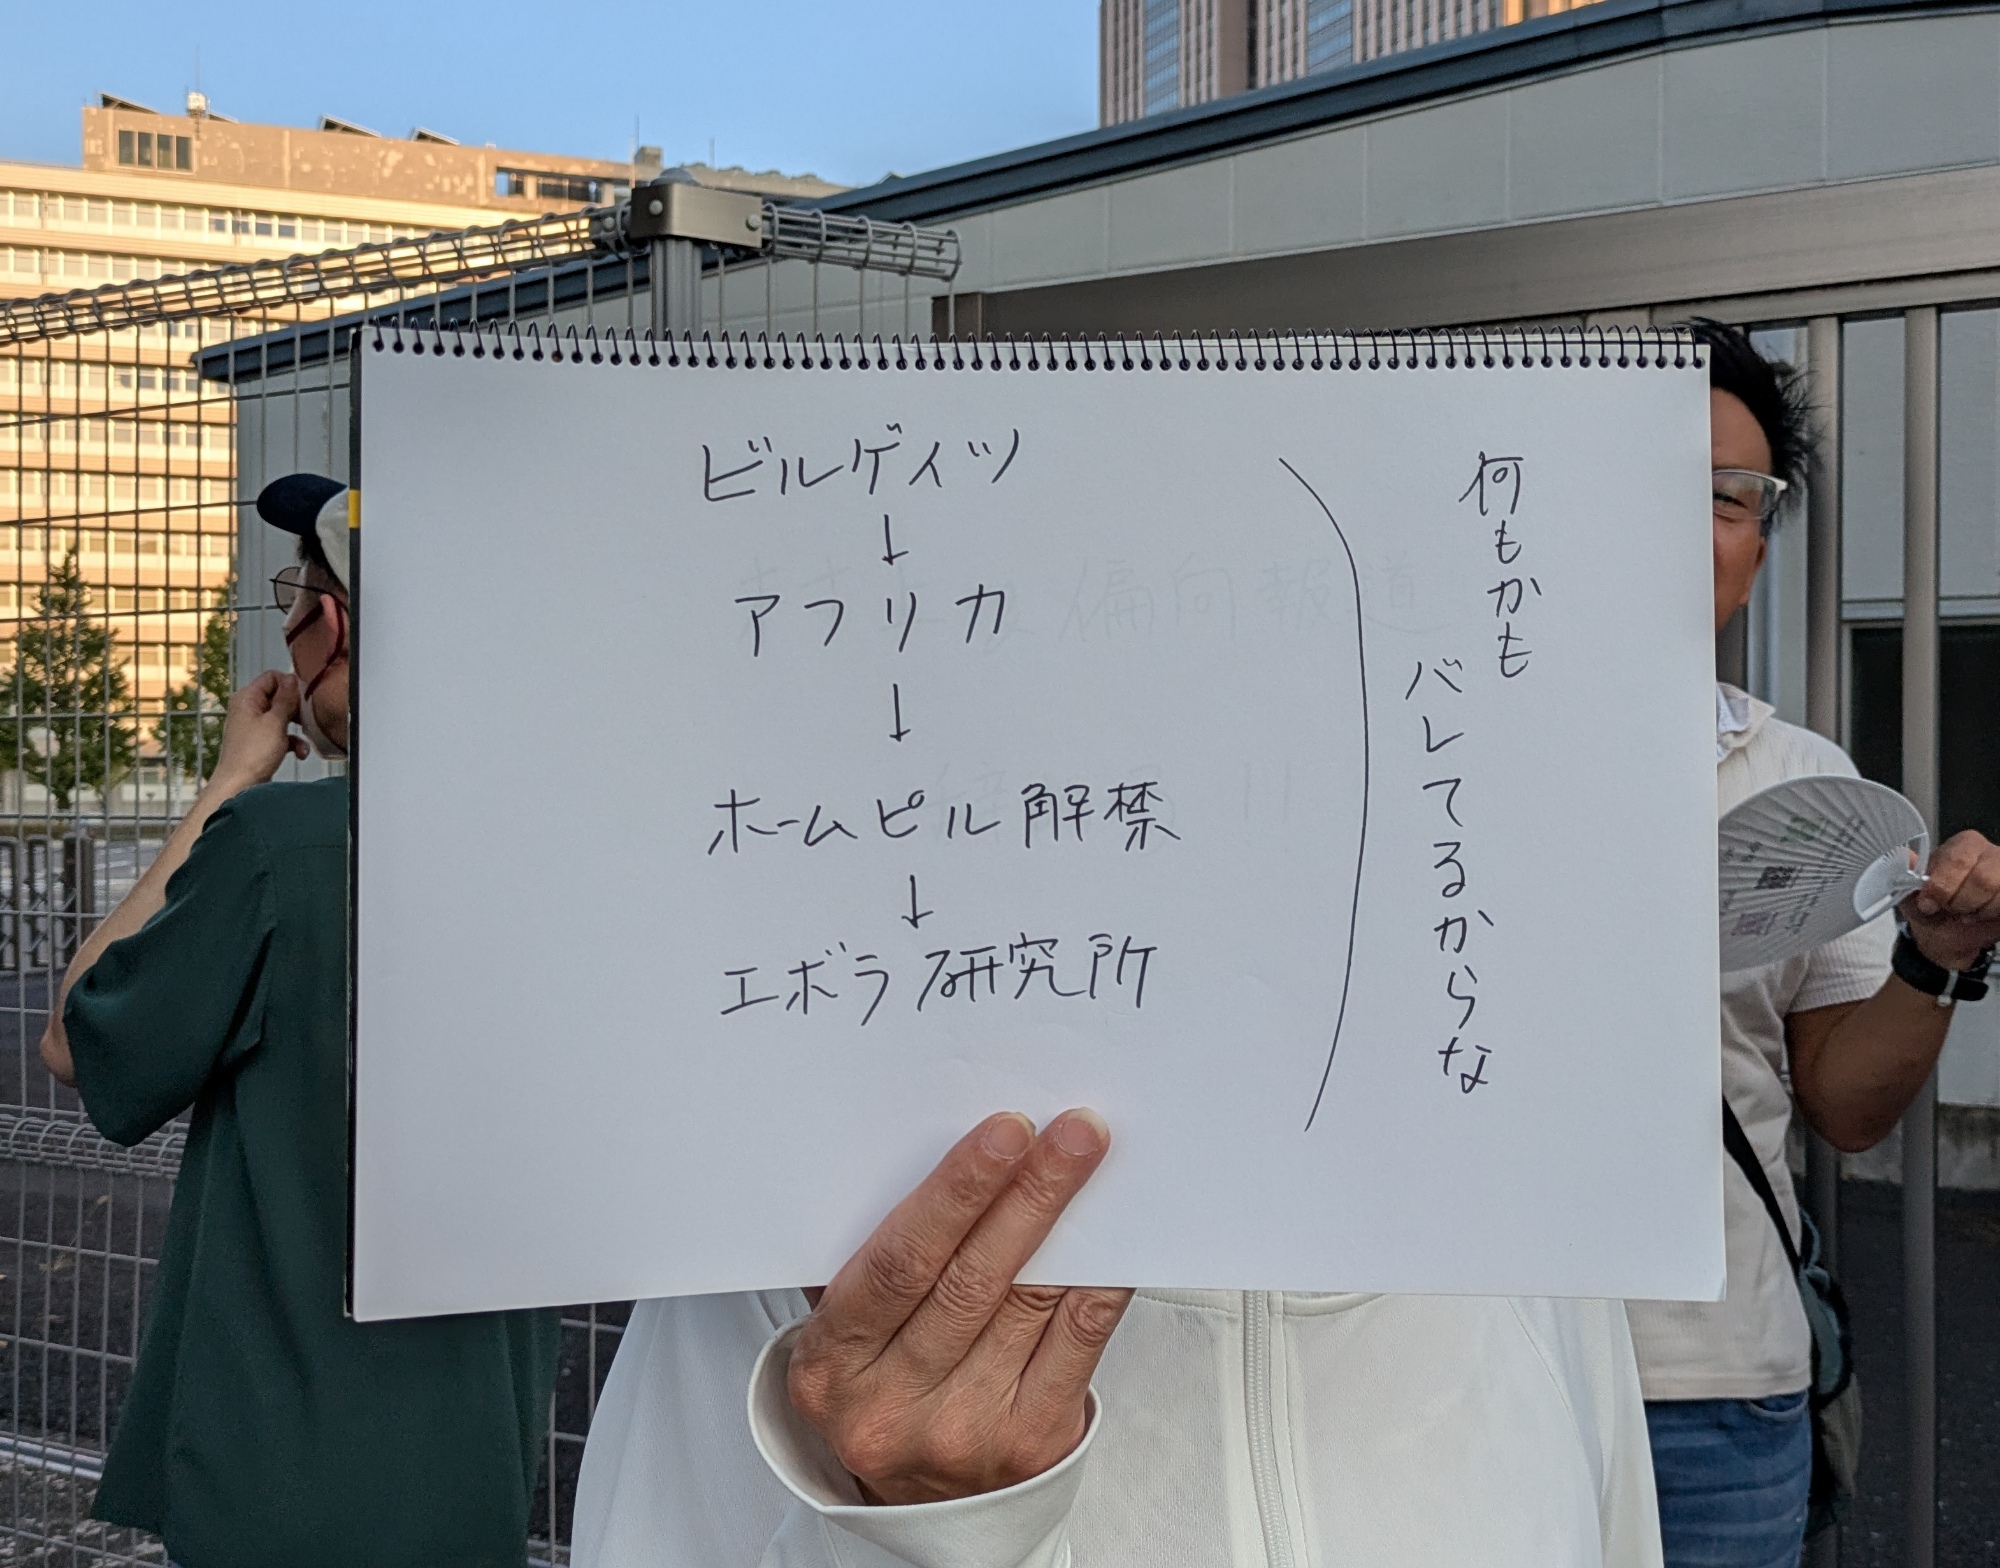 ビルゲイツ
↓
アフリカ
↓
ホームピル解禁
↓
エボラ研究所
何もかも
バレてるからな
偏向報道